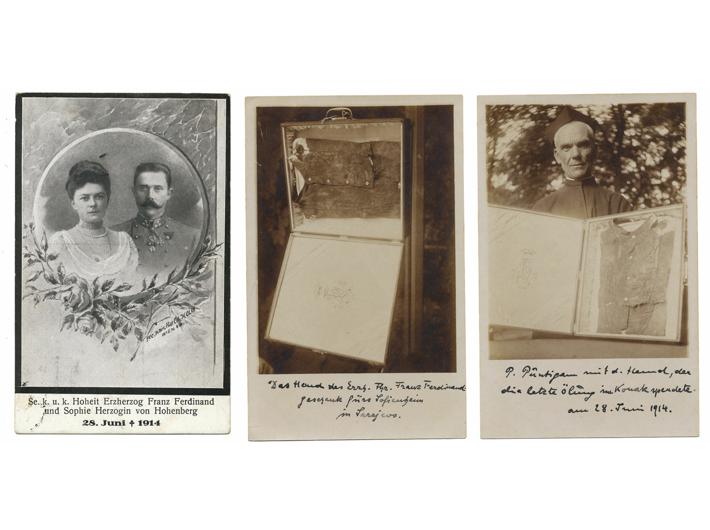 Se. k. u. k. Hoheit Erzherzog Franz Ferdinand
und Sophie Herzogin von Hohenberg
28. Juni † 1914
Das Hemd des Erzh. Thr. Franz Ferdinand
geschenk fürs Sofienheim
in Sarajevo.
P. Püntigam mit d. Hemd, der
die letzte Ölung im Konak spendete
am 28. Juni 1914.